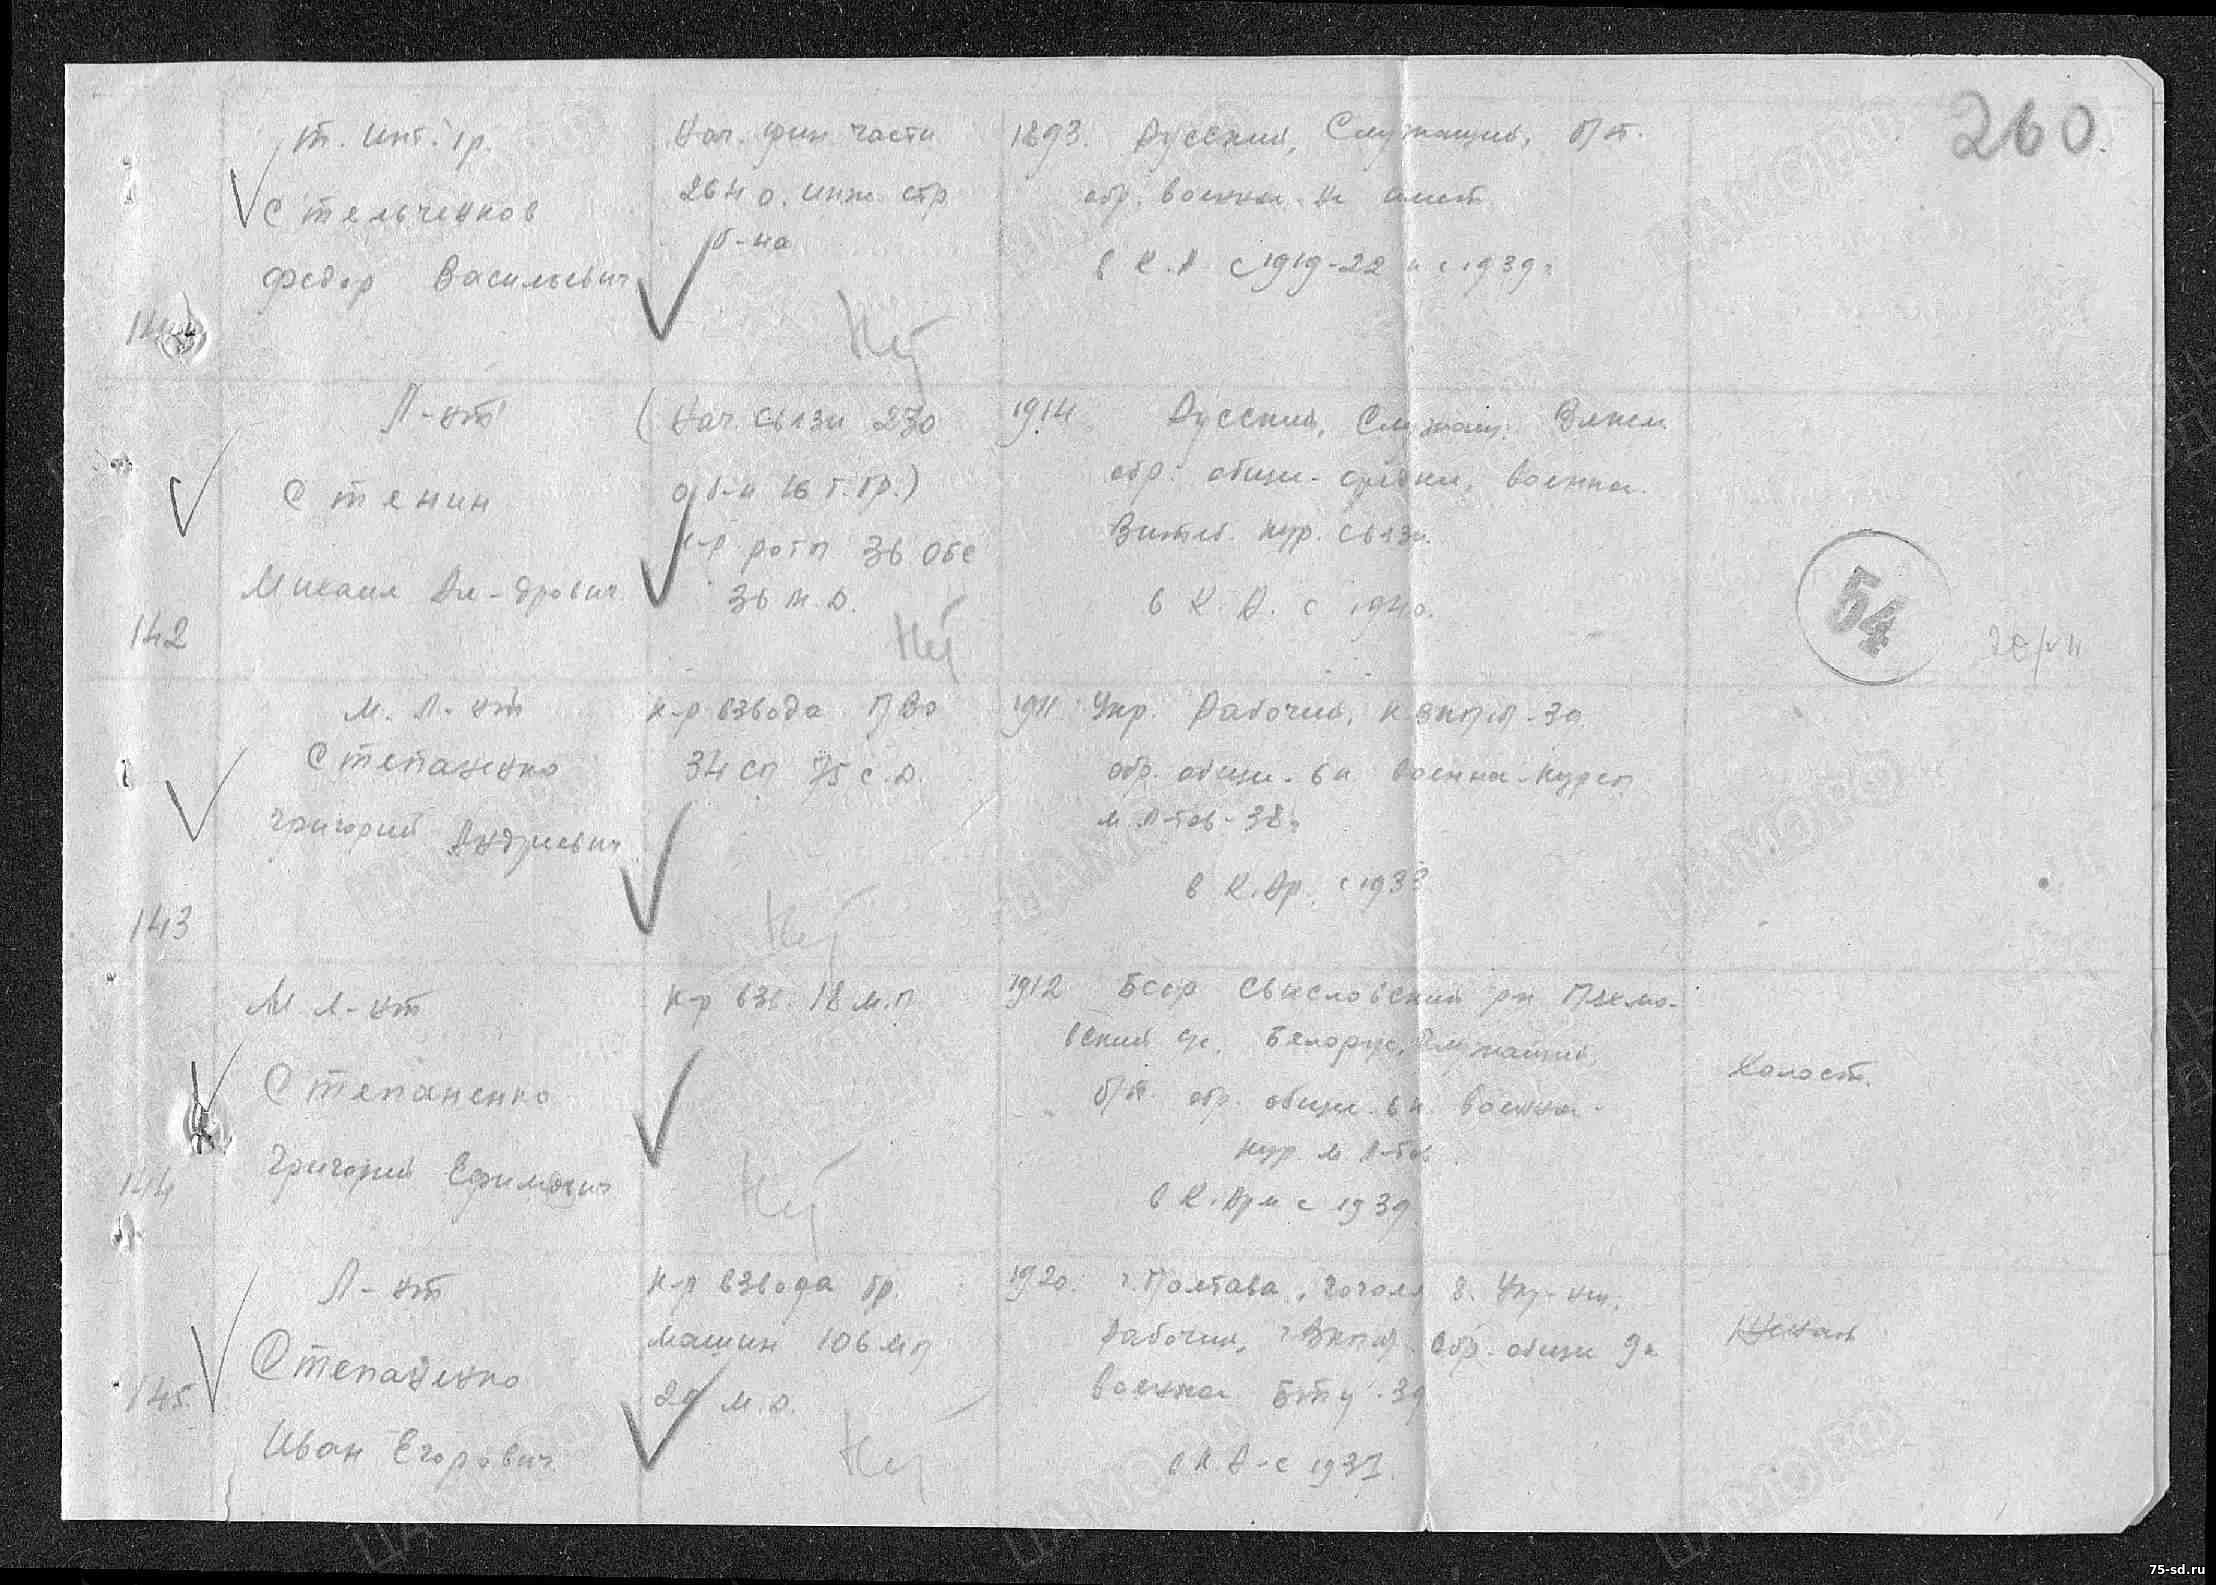 260.
т. инт. 1р.
Стельченков
Федор Васильевич
Нач. фин. части
264 о. инж. стр
б-на
1893. Русский, Служащий, б/п.
обр. военн. не имеет
в К.А с 1919-22 и с 1939г
Л-нт
Стенин
Михаил Ал-дрович
142
(Нач. связи 230
о б-н 16 т. бр.)
к-р роты 36 обс
36 т.д.
1914. Русский, Служащ. Влксм.
обр. общ. средн, военн.
Витеб. кур. связи.
в К.А. с 1940.
54
м. л-нт
Степаненко
Григорий Андреевич
143
к-р взвода ПВО
34 сп 75 с.д.
1911. Укр. Рабочий, к ВКП/б/-39
обр. общ. 6 к военн. курсы
м л-тов-38г
в К.Ар. с 1933
М л-нт
Степаненко
Григорий Ефимович
144
к-р взв. 18 м.п
1912 Бсср Свисловский рн
Белорус, Служащий,
б/п. обр. общ. 6 к. военн.
кур. м л-тов.
в К.Арм с 1939
Холост.
Л-нт
Степаненко
Иван Егорович
145.
к-р взвода бр.
машин 106 мп
29 м.д.
1920. г. Полтава, Гоголя 8. Укр-нец,
Рабочий, ВКП/б/. обр. общ 9к
военн. БТУ-39
в К.А-с 1937.